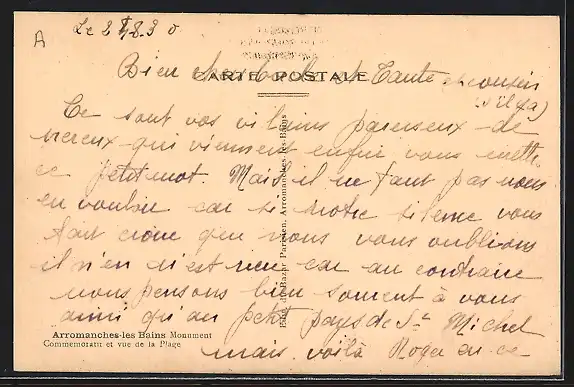 A
Le 2 8.30
CARTE POSTALE
Bien cher Oncle et Tante et cousin
(s'il y a)
Ce sont vos vilains paresseux de
neveux qui viennent enfin vous mettre
ce petit mot. Mais il ne faut pas nous
en vouloir car si notre silence vous
faut croire que nous vous oublions
il n'en n'est rien car au contraire
nous pensons bien souvent à vous
ainsi qu'au petit pays de St Michel
mais voilà Roger a ce
Arromanches-les Bains Monument
Commemoratif et vue de la Plage
Edit. du Bazar Parisien, Arromanches-les-Bains